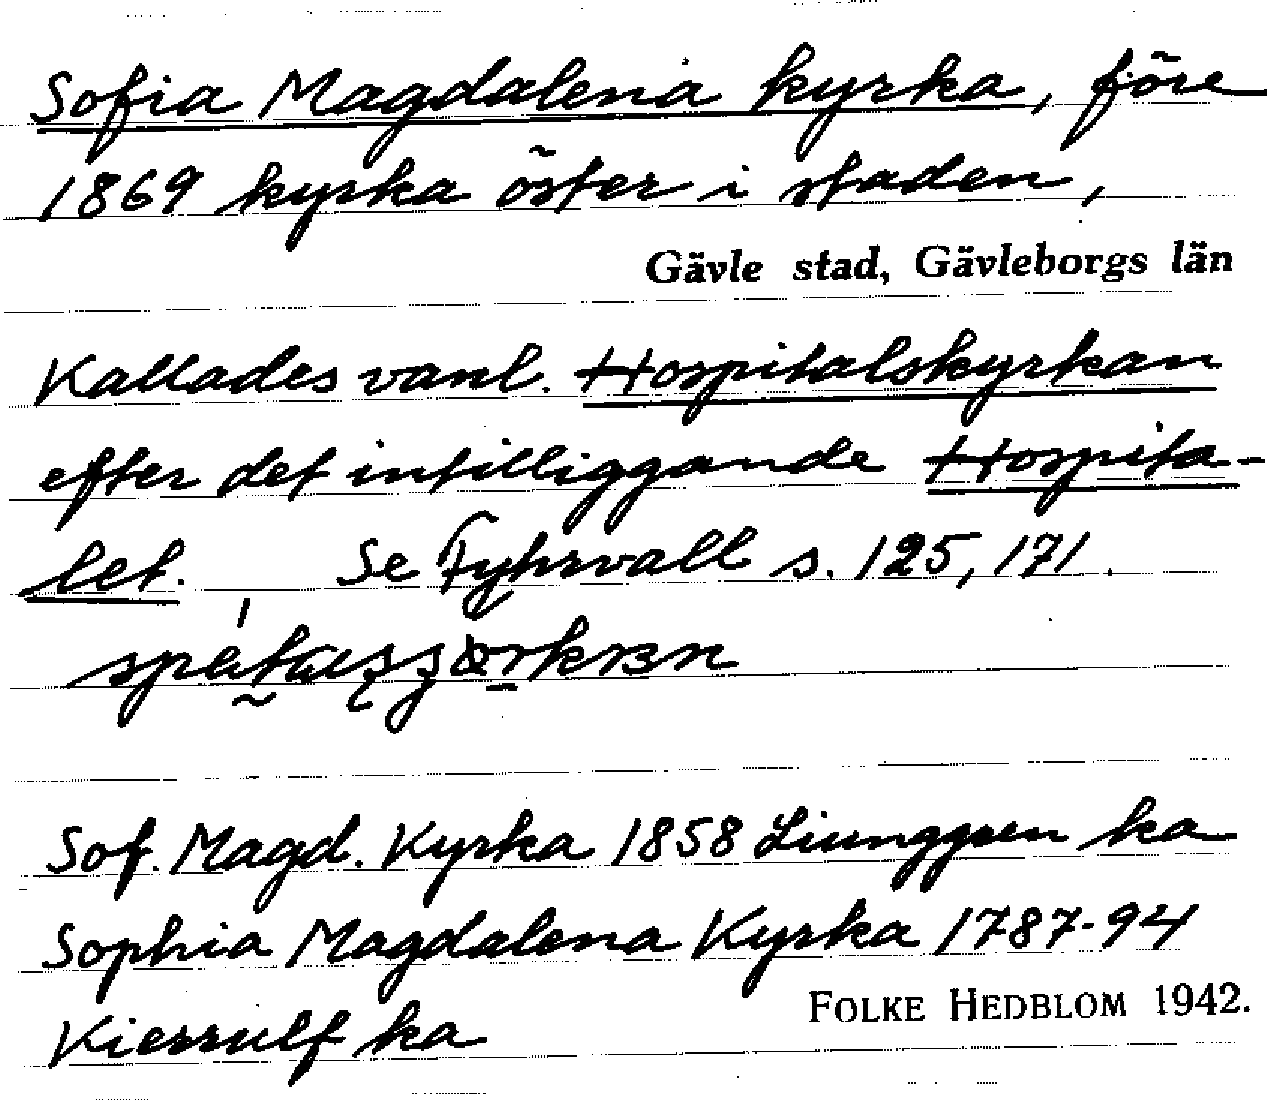 Sofia Magdalena kyrka, före
1869 kyrka öster i staden,
Gävle stad, Gävleborgs län
Kallades vanl. Hospitalskyrkan
efter det intilliggande Hospita-
let. Se Fyhrvall s. 125, 171.
Sof. Magd. Kyrka 1858 Liunggren ka
Sophia Magdalena Kyrka 1787-94
FOLKE HEDBLOM 1942.
Kierrulf ka